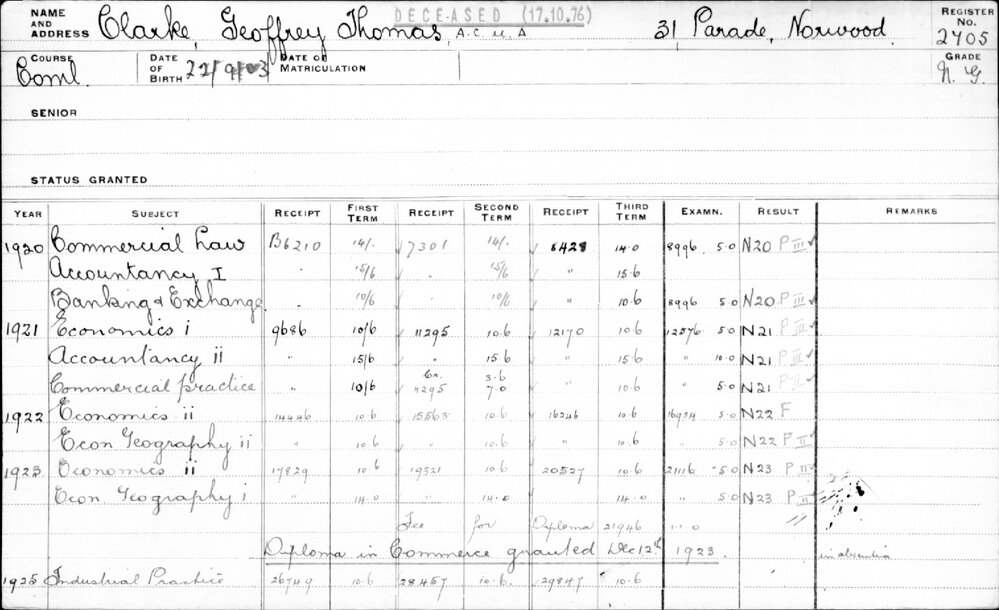 NAME AND ADDRESS Clarke, Geoffrey Thomas, A.C.U.A DECEASED (17.10.76) 31 Parade, Norwood. REGISTER No. 2405
COURSE Coml. DATE OF BIRTH 22/9/03 DATE OF MATRICULATION GRADE N.G.
SENIOR
STATUS GRANTED
YEAR SUBJECT RECEIPT FIRST TERM RECEIPT SECOND TERM RECEIPT THIRD TERM EXAMN. RESULT REMARKS
1920 Commercial Law B6210 14/. 7301 14/. 8428 14.0 8996 5.0 N20 P III ✓
Accountancy I . 15/6 . 15/6 " 15.6
Banking & Exchange . 10/6 . 10/6 " 10.6 8996 5.0 N20 P III ✓
1921 Economics i 9686 10/6 11295 10.6 12170 10.6 12576 5.0 N21 P III ✓
Accountancy ii " 15/6 " 15.6 " 15.6 " 10.0 N21 P II ✓
Commercial practice " 10/6 11295 3.6 7.0 " 10.6 " 5.0 N21 P
1922 Economics ii 14446 10.6 15563 10.6 16246 10.6 16934 5.0 N22 F
Econ Geography ii " 10.6 " 10.6 " 10.6 " 5.0 N22 P II ✓
1923 Economics ii 17829 10.6 19321 10.6 20527 10.6 21116 5.0 N23 P II ✓
Econ Geography i " 14.0 " 14.0 " 14.0 " 5.0 N23 P II
Fee for Diploma 21946
Diploma in Commerce granted Dec 12th 1923. in absentia
1925 Industrial Practice 26749 10.6 28457 10.6. 29847 10.6